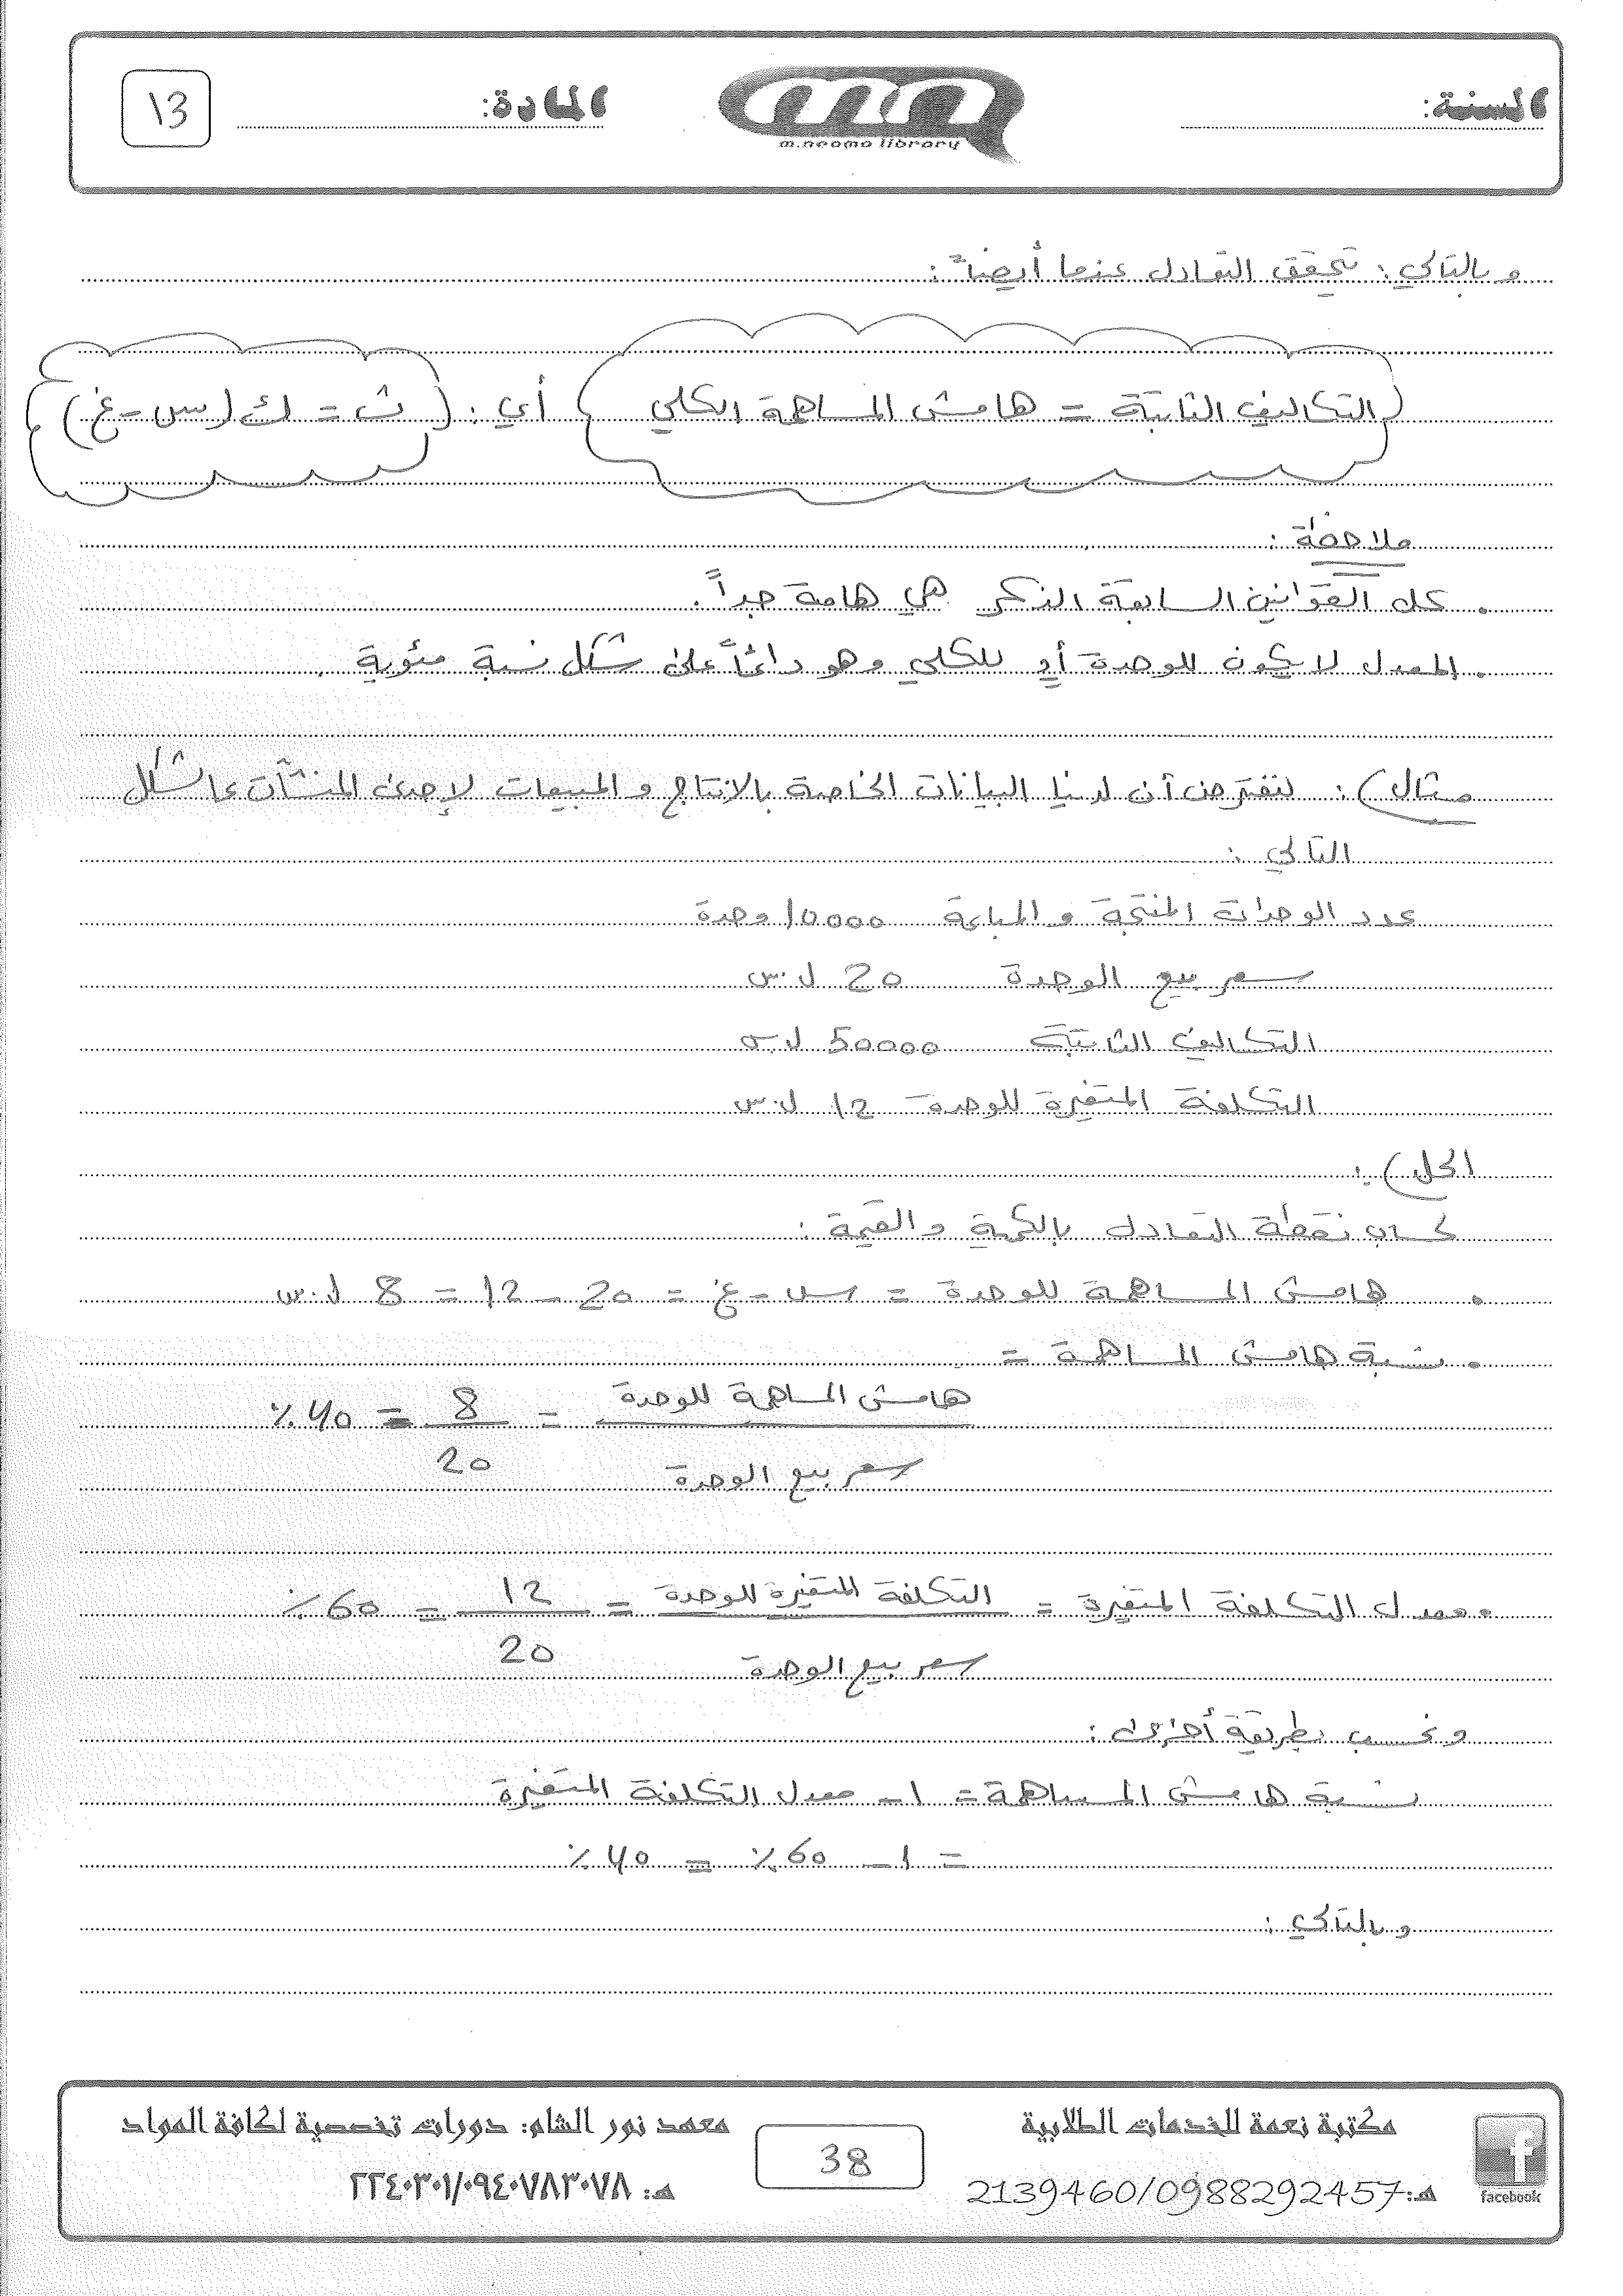 السنة:
m.neama library
المادة:
13
وبالتالي: تحقق التعادل عندما أيضاً:
(التكاليف الثابتة = هامش المساهمة الكلي) أي: (ث = ك (س - غ)
ملاحظة:
. كل القوانين السابقة الذكر هي هامة جداً.
. المعدل لا يكون للوحدة أو للكلي وهو دائماً على شكل نسبة مئوية.
مثال): لنفترض أن لدينا البيانات الخاصة بالانتاج والمبيعات لإحدى المنشآت عالشكل
التالي:
عدد الوحدات المنتجة والمباعة 10000 وحدة
سعر بيع الوحدة 20 ل.س
التكاليف الثابتة 50000 ل.س
التكلفة المتغيرة للوحدة 12 ل.س
الحل):
لحساب نقطة التعادل بالكمية والقيمة:
. هامش المساهمة للوحدة = س - غ = 20 - 12 = 8 ل.س
. نسبة هامش المساهمة =
هامش المساهمة للوحدة = 8 = 40٪
سعر بيع الوحدة 20
. معدل التكلفة المتغيرة = التكلفة المتغيرة للوحدة = 12 = 60٪
سعر بيع الوحدة 20
ونحسب بطريقة أخرى:
نسبة هامش المساهمة = 1 - معدل التكلفة المتغيرة
= 1 - 60٪ = 40٪
وبالتالي:
مكتبة نعمة للخدمات الطلابية
هـ: 2139460/0988292457
facebook
38
معهد نور الشام: دورات تخصصية لكافة المواد
هـ: ٢٢٤٠٣٠١/٠٩٤٠٧٨٣٠٧٨